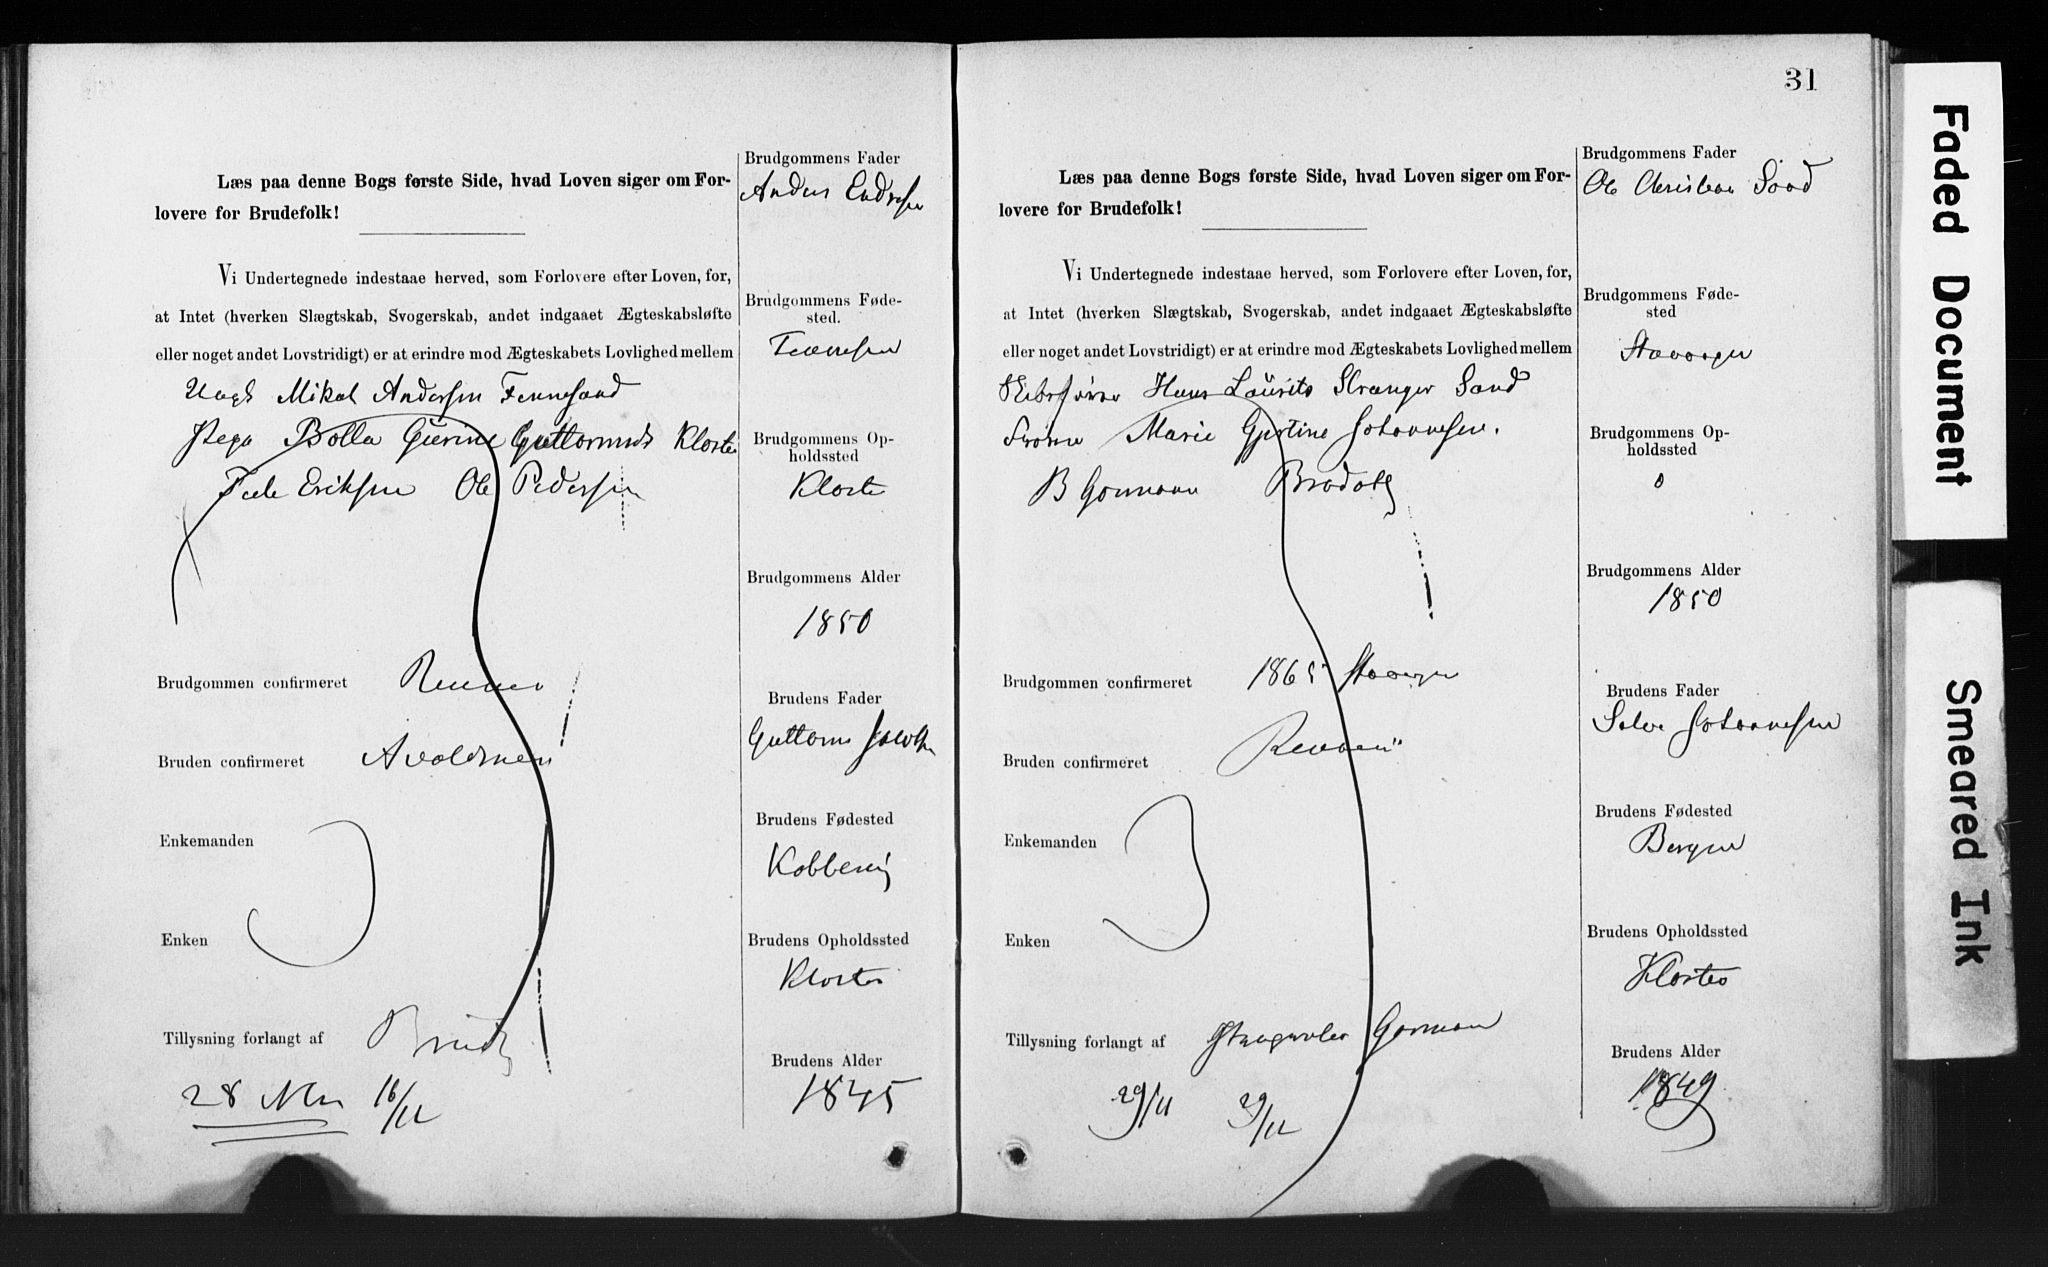 Læs paa denne Bogs første Side, hvad Loven siger om For-
lovere for Brudefolk!
Vi Undertegnede indestaae herved, som Forlovere efter Loven, for,
at Intet (hverken Slægtskab, Svogerskab, andet indgaaet Ægteskabsløfte
eller noget andet Lovstridigt) er at erindre mod Ægteskabets Lovlighed mellem
Mikal Andersen Fennesand
Pega Bolla Gurine Guttormsd Kloster
Eriksen Ole Pedersen
Brudgommen confirmeret Rennes
Bruden confirmeret Avaldsnes
Enkemanden
Enken
Tillysning forlangt af Brudg
28 Nbr 16/11
Brudgommens Fader
Anders Endresen
Brudgommens Føde-
sted.
Brudgommens Op-
holdssted
Kloster
Brudgommens Alder
1850
Brudens Fader
Guttorm Jacobsen
Brudens Fødested
Kobbervig
Brudens Opholdssted
Kloster
Brudens Alder
1845
31
Læs paa denne Bogs første Side, hvad Loven siger om For-
lovere for Brudefolk!
Vi Undertegnede indestaae herved, som Forlovere efter Loven, for,
at Intet (hverken Slægtskab, Svogerskab, andet indgaaet Ægteskabsløfte
eller noget andet Lovstridigt) er at erindre mod Ægteskabets Lovlighed mellem
Hans Laurits Stranger Sand
Marie Gjertine Johannesen.
B Gormann
Brudgommen confirmeret 1865 Stavanger
Bruden confirmeret
Enkemanden
Enken
Tillysning forlangt af Gorman
29/11 29/11
Brudgommens Fader
Ole Christian Sand
Brudgommens Føde-
sted
Stavanger
Brudgommens Op-
holdssted
o
Brudgommens Alder
1850
Brudens Fader
Johannesen
Brudens Fødested
Bergen
Brudens Opholdssted
Kloster
Brudens Alder
1849
Faded Document
Smeared Ink